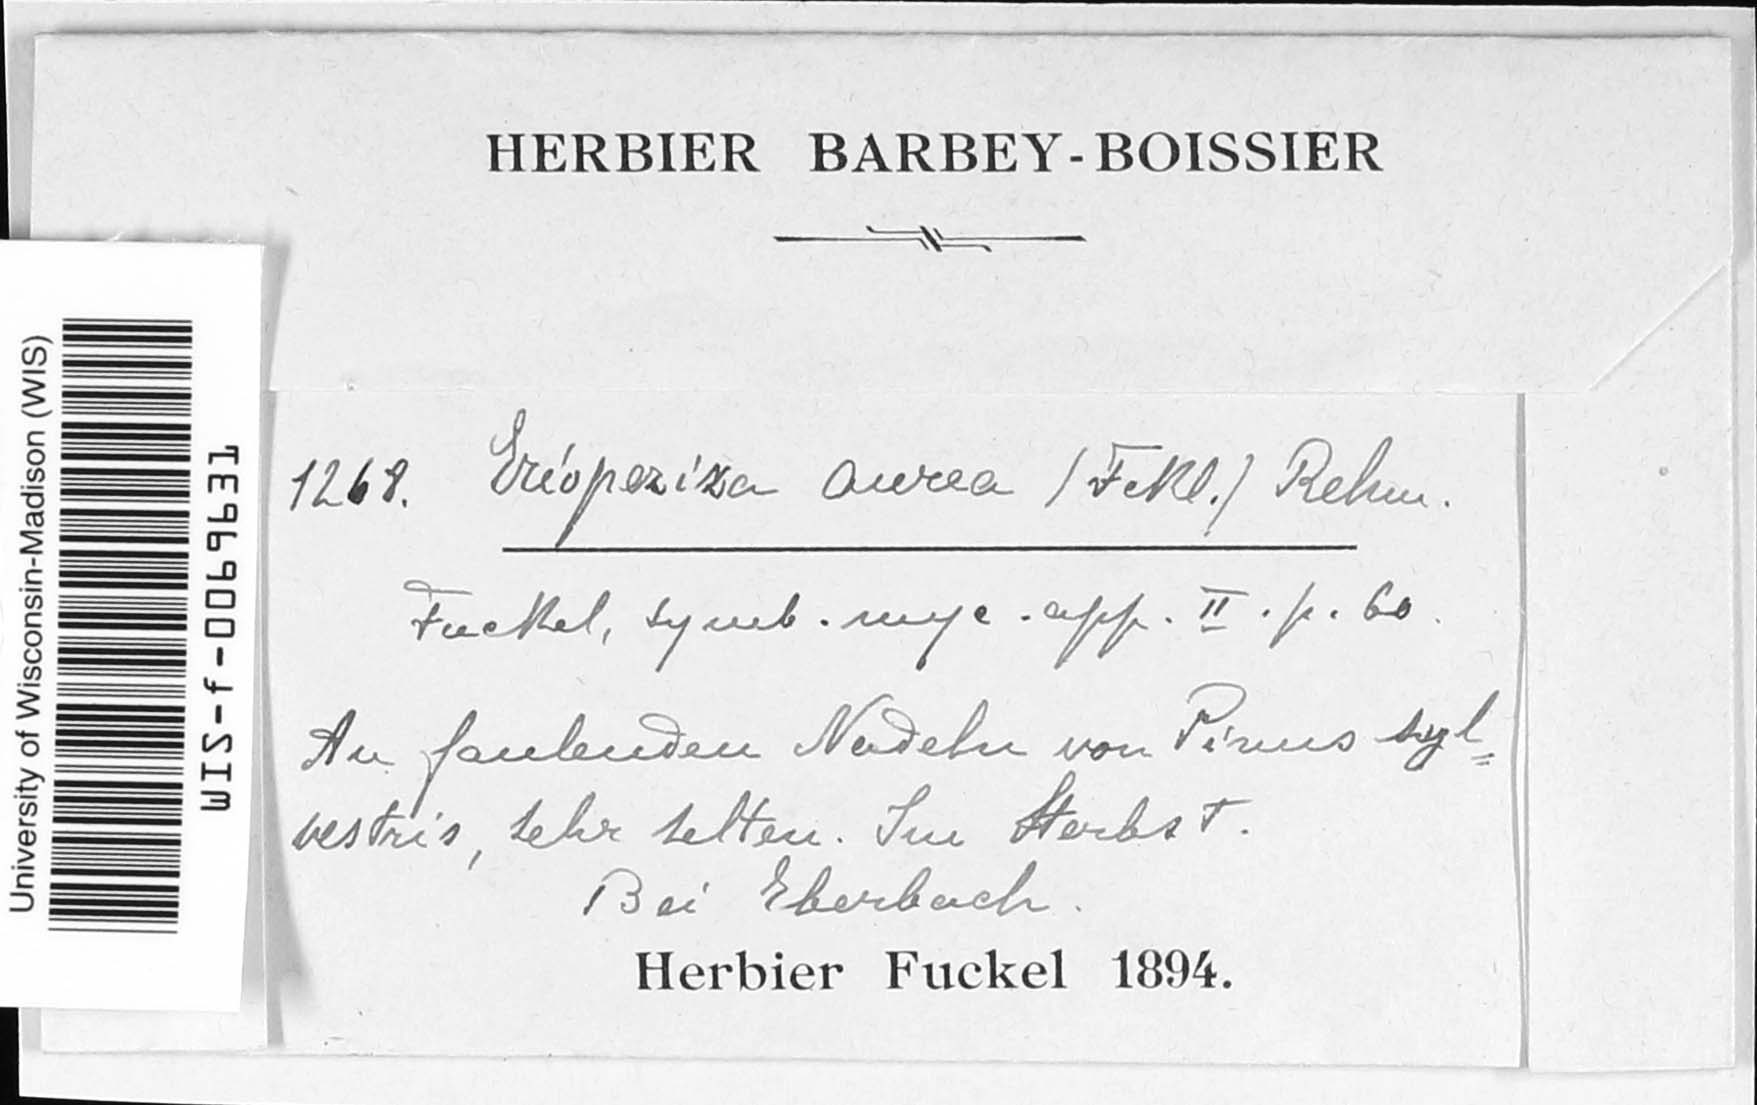 HERBIER BARBEY-BOISSIER
University of Wisconsin-Madison (WIS)
WIS-f-0069631
1268. Eriopeziza aurea (Fckl.) Rehm.
Fuckel, symb. myc. app. II. p. 60.
An faulenden Nadeln von Pinus syl=
vestris, sehr selten. Im Herbst.
Bei Eberbach.
Herbier Fuckel 1894.